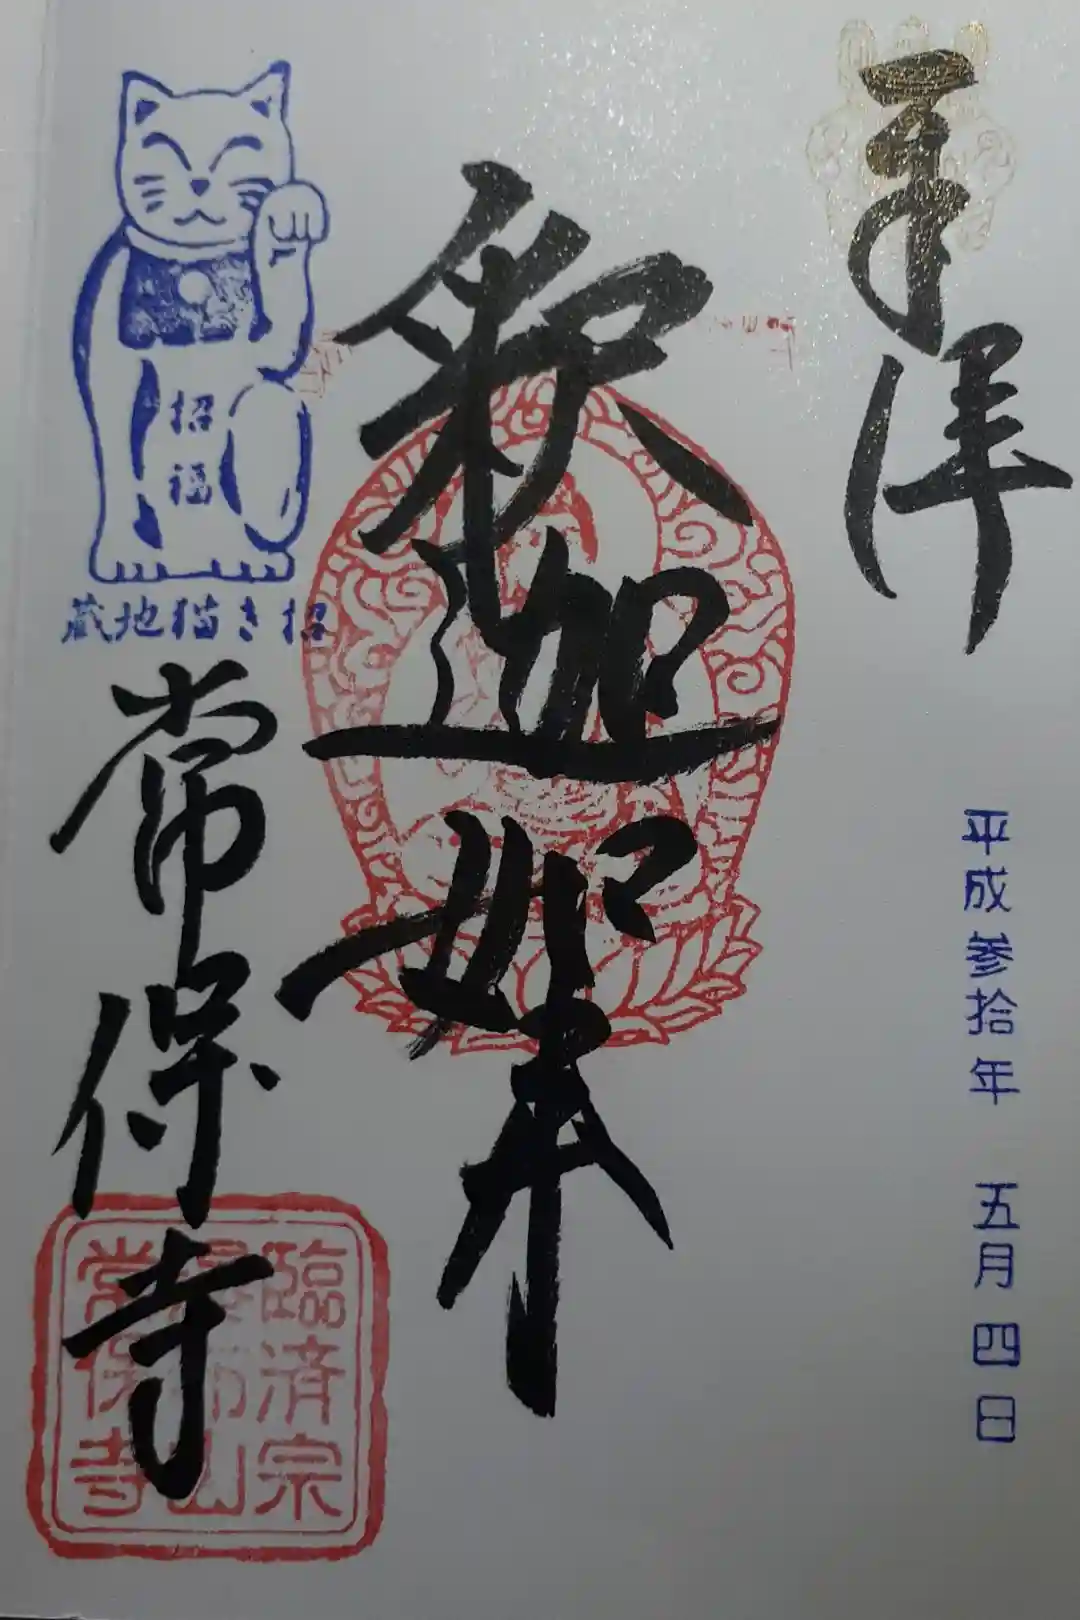 奉拝
平成参拾年 五月四日
釈迦如来
招福
招き猫地蔵
常保寺
臨済宗
山
常保寺